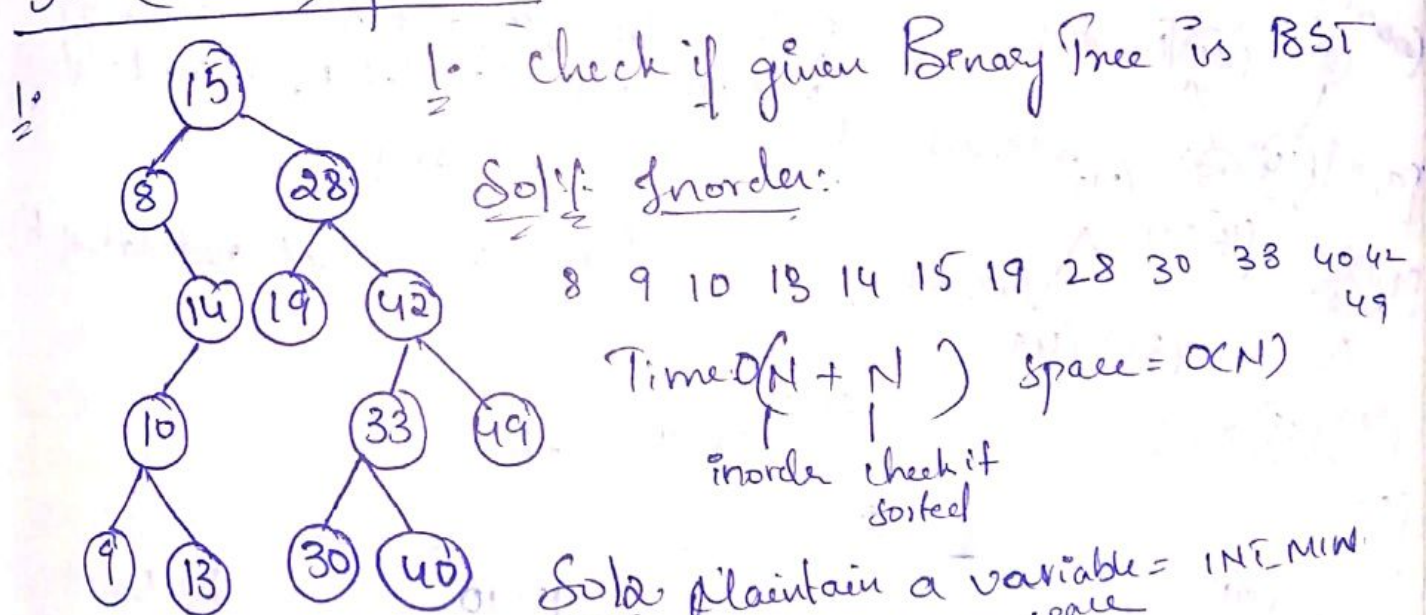 1.
15
8 28
14 19 42
10 33 49
9 13 30 40
1. Check if given Binary Tree is BST
Sol1: Inorder:
8 9 10 13 14 15 19 28 30 33 40 42
49
Time O(N + N) space = O(N)
inorder check if
sorted
Sol2 Maintain a variable = INT_MIN.
space